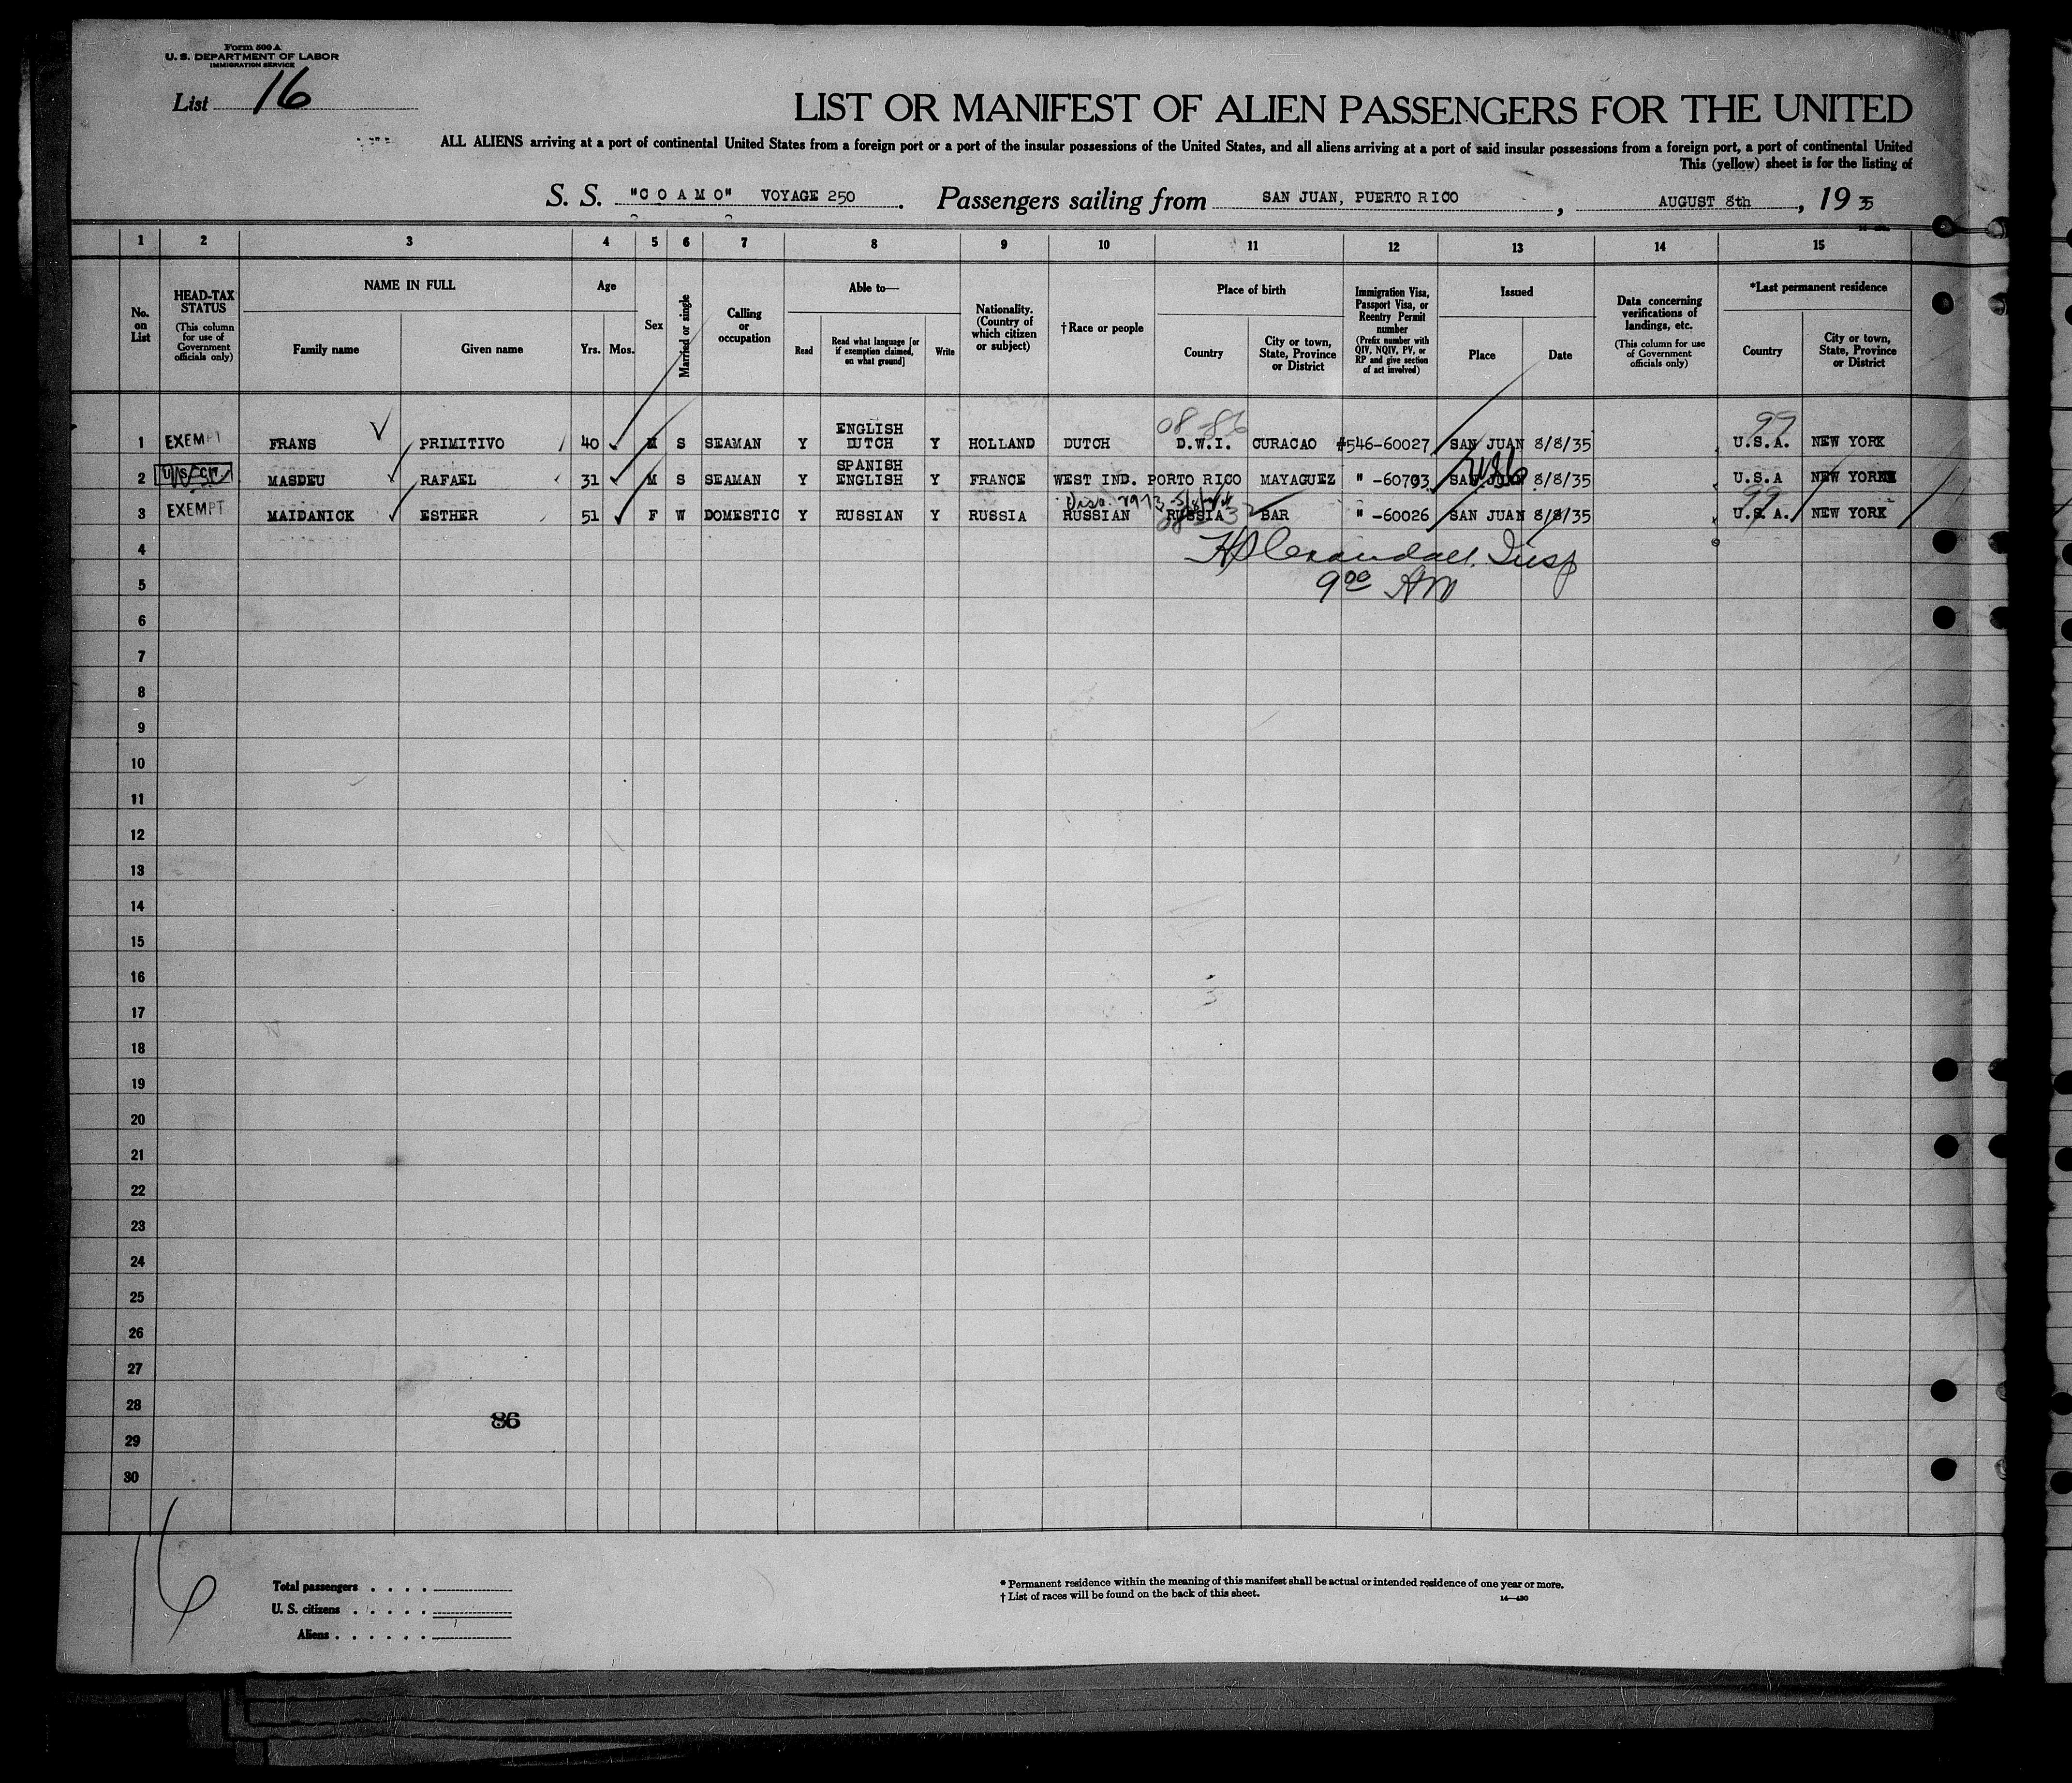 Form 500 A
U. S. DEPARTMENT OF LABOR
IMMIGRATION SERVICE
List 16
LIST OR MANIFEST OF ALIEN PASSENGERS FOR THE UNITED
ALL ALIENS arriving at a port of continental United States from a foreign port or a port of the insular possessions of the United States, and all aliens arriving at a port of said insular possessions from a foreign port, a port of continental United
This (yellow) sheet is for the listing of
S. S. "COAMO" VOYAGE 250. Passengers sailing from SAN JUAN, PUERTO RICO, AUGUST 8th, 19 35
1 2 3 4 5 6 7 8 9 10 11 12 13 14 15
No. on List
HEAD-TAX STATUS
(This column for use of Government officials only)
NAME IN FULL
Family name
Given name
Age
Yrs.
Mos.
Sex
Married or single
Calling or occupation
Able to—
Read
Read what language [or if exemption claimed, on what ground]
Write
Nationality. (Country of which citizen or subject)
†Race or people
Place of birth
Country
City or town, State, Province or District
Immigration Visa, Passport Visa, or Reentry Permit number
(Prefix number with QIV, NQIV, PV, or RP and give section of act involved)
Issued
Place
Date
Data concerning verifications of landings, etc.
(This column for use of Government officials only)
*Last permanent residence
Country
City or town, State, Province or District
08-86 99
1 EXEMPT FRANS PRIMITIVO 40 M S SEAMAN Y ENGLISH DUTCH Y HOLLAND DUTCH D.W.I. CURACAO #546-60027 SAN JUAN 8/8/35 U.S.A. NEW YORK
2 MASDEU RAFAEL 31 M S SEAMAN Y SPANISH ENGLISH Y FRANCE WEST IND. PORTO RICO MAYAGUEZ " -60703 SAN JUAN 8/8/35 U.S.A NEW YORK
99
3 EXEMPT MAIDANICK ESTHER 51 F W DOMESTIC Y RUSSIAN Y RUSSIA RUSSIAN RUSSIA BAR " -60026 SAN JUAN 8/8/35 U.S.A. NEW YORK
4
Insp
5
9 00 AM
6
7
8
9
10
11
12
13
14
15
16
17
18
19
20
21
22
23
24
25
26
27
28
86
29
30
16
Total passengers
U. S. citizens
Aliens
* Permanent residence within the meaning of this manifest shall be actual or intended residence of one year or more.
† List of races will be found on the back of this sheet.
14—430